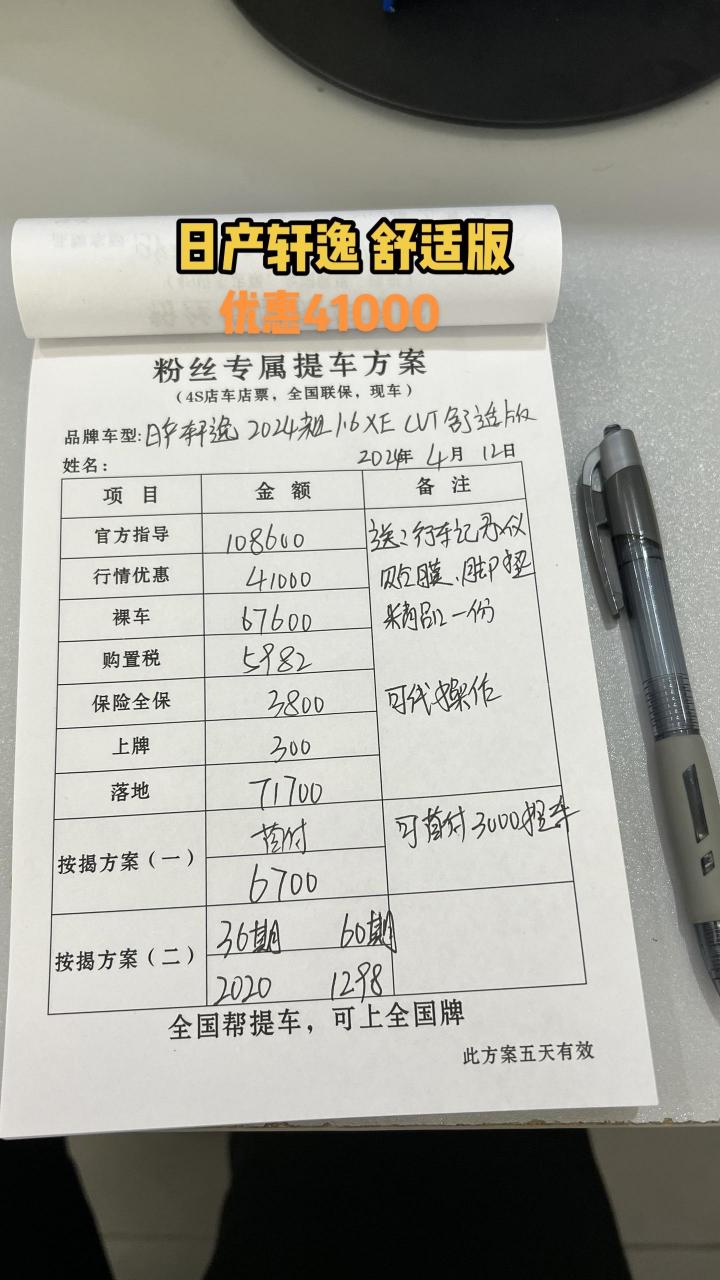 日产轩逸 舒适版
优惠41000
粉丝专属提车方案
(4S店车店票，全国联保，现车)
品牌车型: 日产轩逸 2024款 1.6XE CVT 舒适版
姓名: 2024年 4月 12日
项 目 金 额 备 注
官方指导 108600 送:行车记录仪
行情优惠 41000 贴膜、脚垫
裸车 67600 精品一份
购置税 5982
保险全保 3800 可代操作
上牌 300
落地 71700
按揭方案(一) 首付 可首付3000提车
6700
按揭方案(二) 36期 60期
2020 1298
全国帮提车，可上全国牌
此方案五天有效